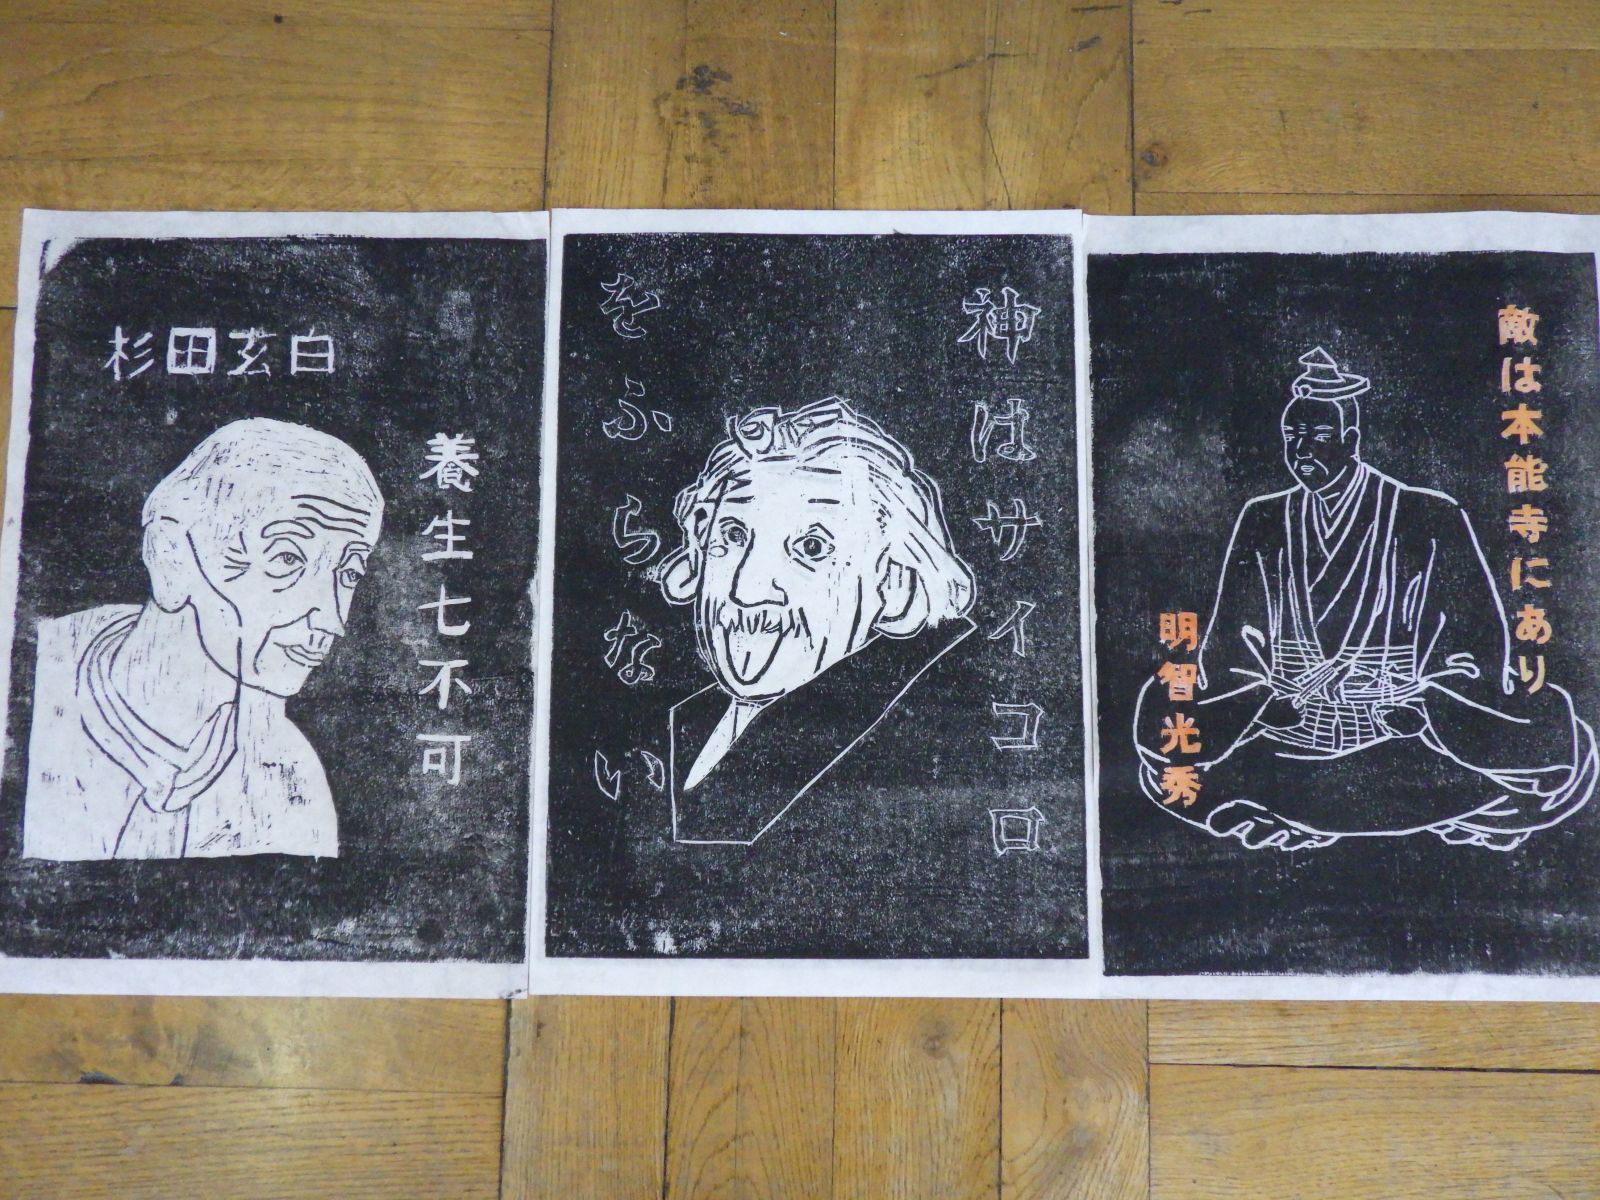 杉田玄白
養生七不可
神はサイコロ
をふらない
敵は本能寺にあり
明智光秀